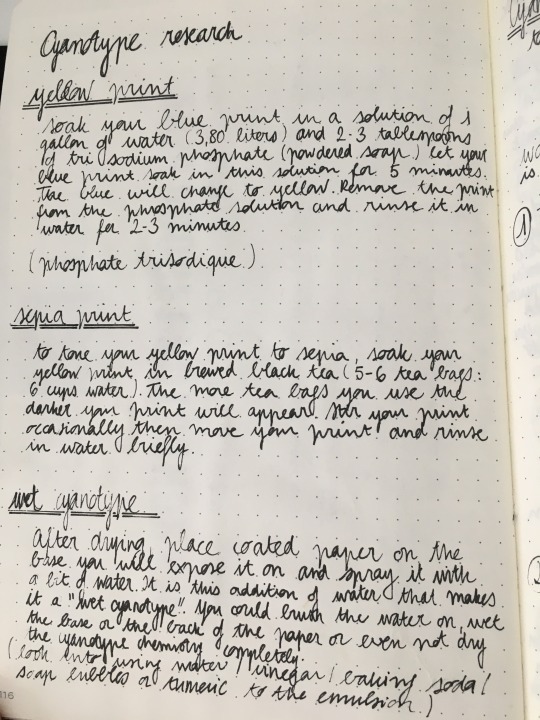 Cyanotype research
yellow print
soak your blue print in a solution of 1
gallon of water (3,80 liters) and 2-3 tablespoons
of tri sodium phosphate (powdered soap) let your
blue print soak in this solution for 5 minutes.
The blue will change to yellow. Remove the print
from the phosphate solution and rinse it in
water for 2-3 minutes.
(phosphate trisodique)
sepia print
to tone your yellow print to sepia, soak your
yellow print in brewed black tea (5-6 tea bags :
6 cups water). The more tea bags you use the
darker your print will appear. Stir your print
occasionally then move your print and rinse
in water briefly.
wet cyanotype
After drying place coated paper on the
base you will expose it on and spray it with
a bit of water. It is this addition of water that makes
it a "wet cyanotype". You could brush the water on, wet
the base or the back of the paper or even not dry
the cyanotype chemistry completely.
(look into using water / vinegar / baking soda /
soap bubbles or tumeric to the emulsion.)
116
Cya
to
wa
is
1
2